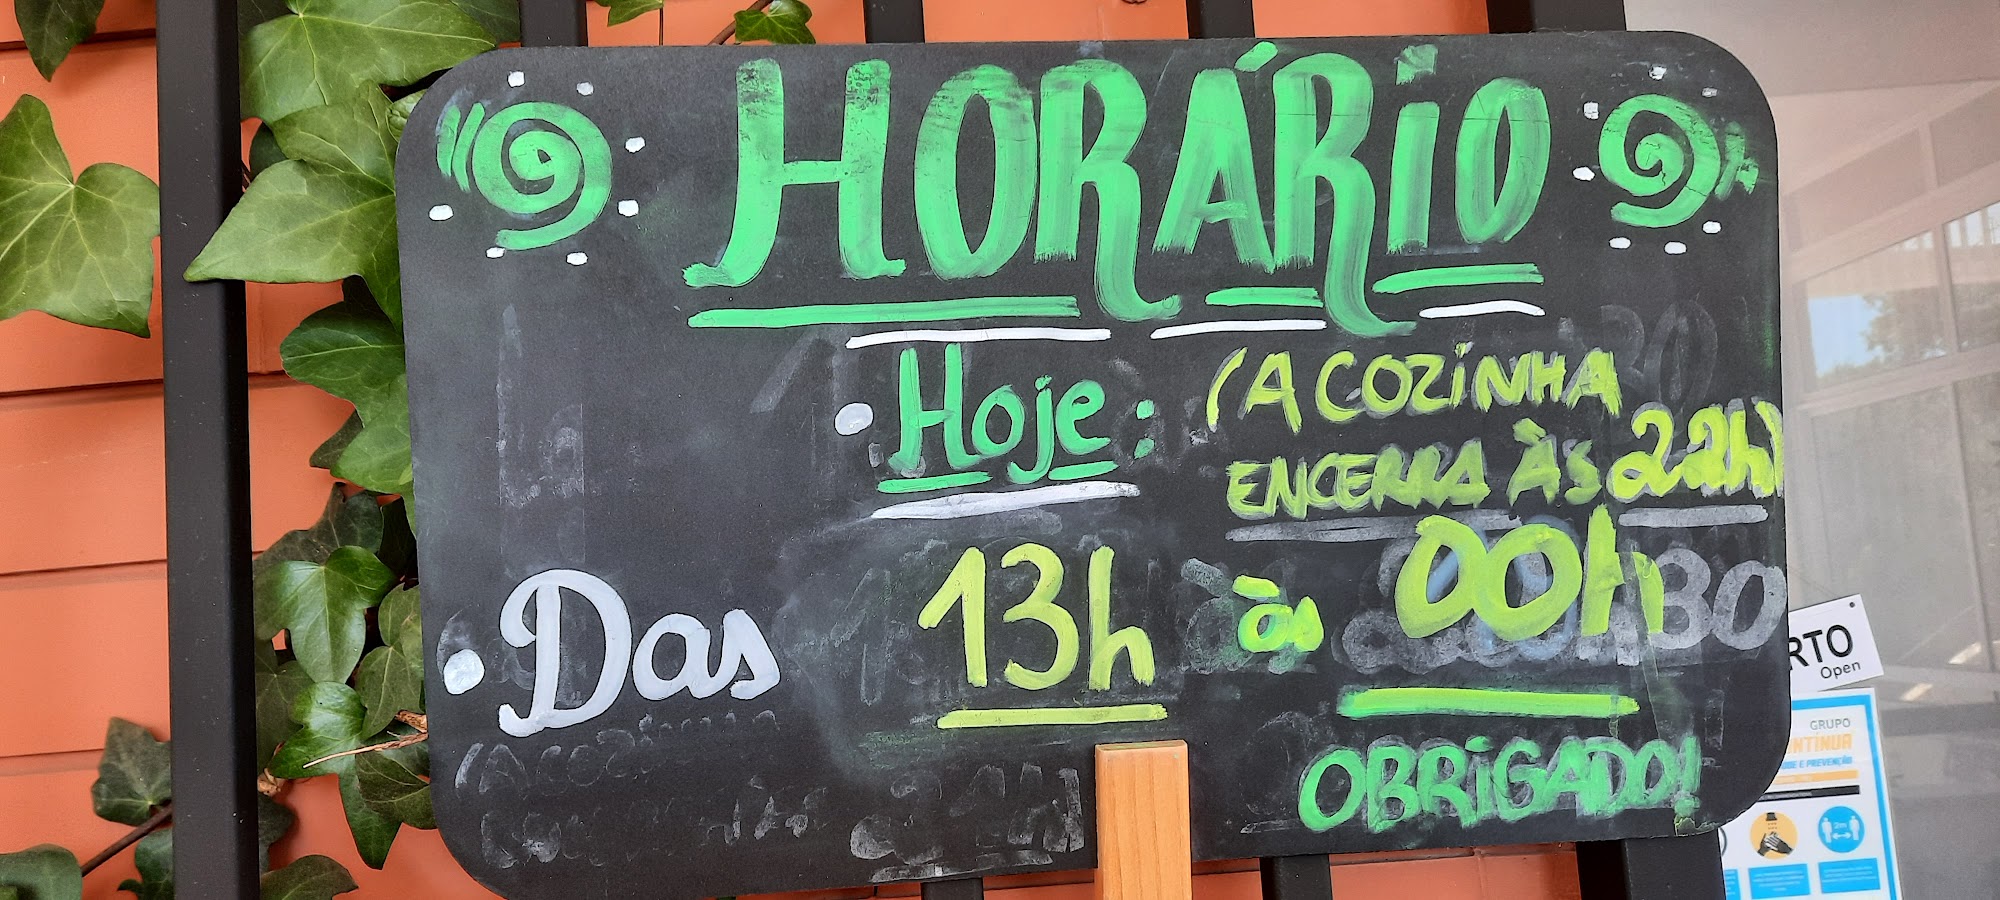 HORÁRIO
Hoje:
(A COZINHA
ENCERRA ÀS 22h)
Das 13h às 00h
OBRIGADO!
RTO
Open
GRUPO
NTINUA
DE E PREVENÇÃO
2m